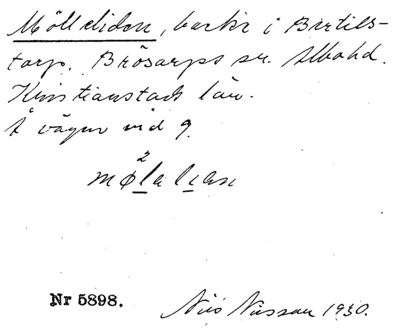 Mölleliden, backe i Bertils-
torp. Brösarps sn. Albohd.
Kristianstads län.
Å vägen vid 9.
2
Nr 5898.
Nils Nilsson 1930.